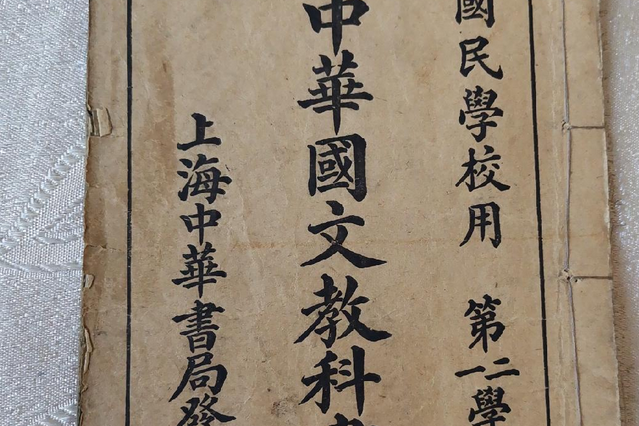 國民學校用 第一二學
中華國文教科
上海中華書局發